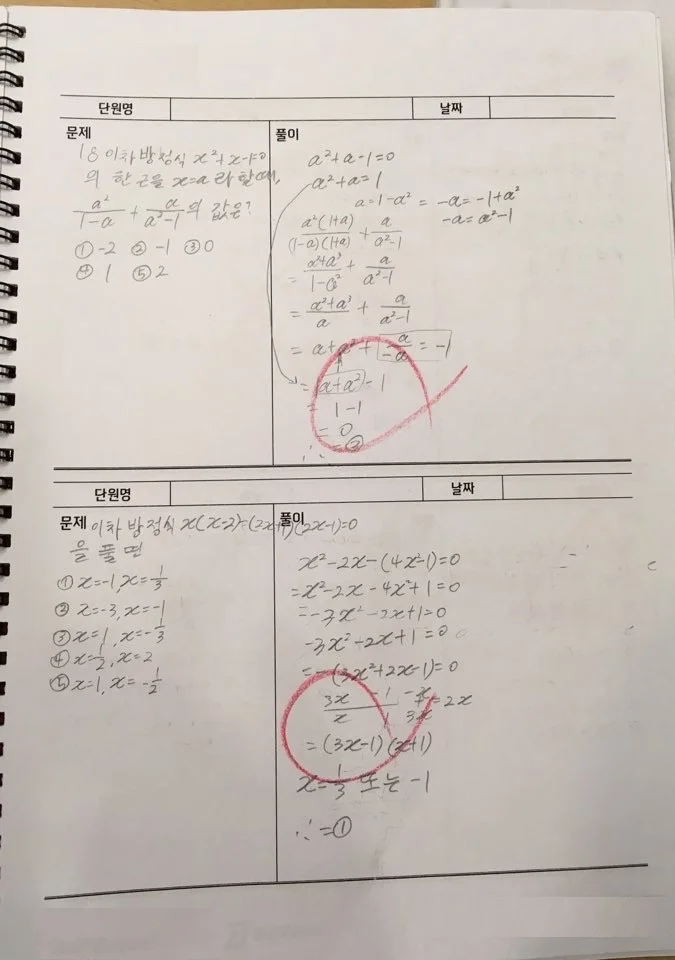 단원명 날짜
문제 풀이
18 이차방정식 x²+x-1=0
의 한 근을 x=a라 할때,
a²/(1-a) + a/(a²-1)의 값은?
① -2 ② -1 ③ 0
④ 1 ⑤ 2
a²+a-1=0
a²+a=1
a=1-a² = -a=-1+a²
-a=a²-1
a²(1+a)/(1-a)(1+a) + a/(a²-1)
= (a²+a³)/(1-a²) + a/(a²-1)
= (a²+a³)/a + a/(a²-1)
= a+a² + a/-a = -1
= (a+a²)-1
= 1-1
= 0
∴ = ③
단원명 날짜
문제 이차방정식 x(x-2)-(2x+1)(2x-1)=0 풀이
을 풀면
① x=-1, x=1/3
② x=-3, x=-1
③ x=1, x=-1/3
④ x=1/2, x=2
⑤ x=1, x=-1/2
x²-2x-(4x²-1)=0
=x²-2x-4x²+1=0
=-3x²-2x+1=0
-3x²-2x+1=0
=-(3x²+2x-1)=0
3x -1 -x
x 1 3x =2x
=(3x-1)(x+1)
x=1/3 또는 -1
∴ = ①